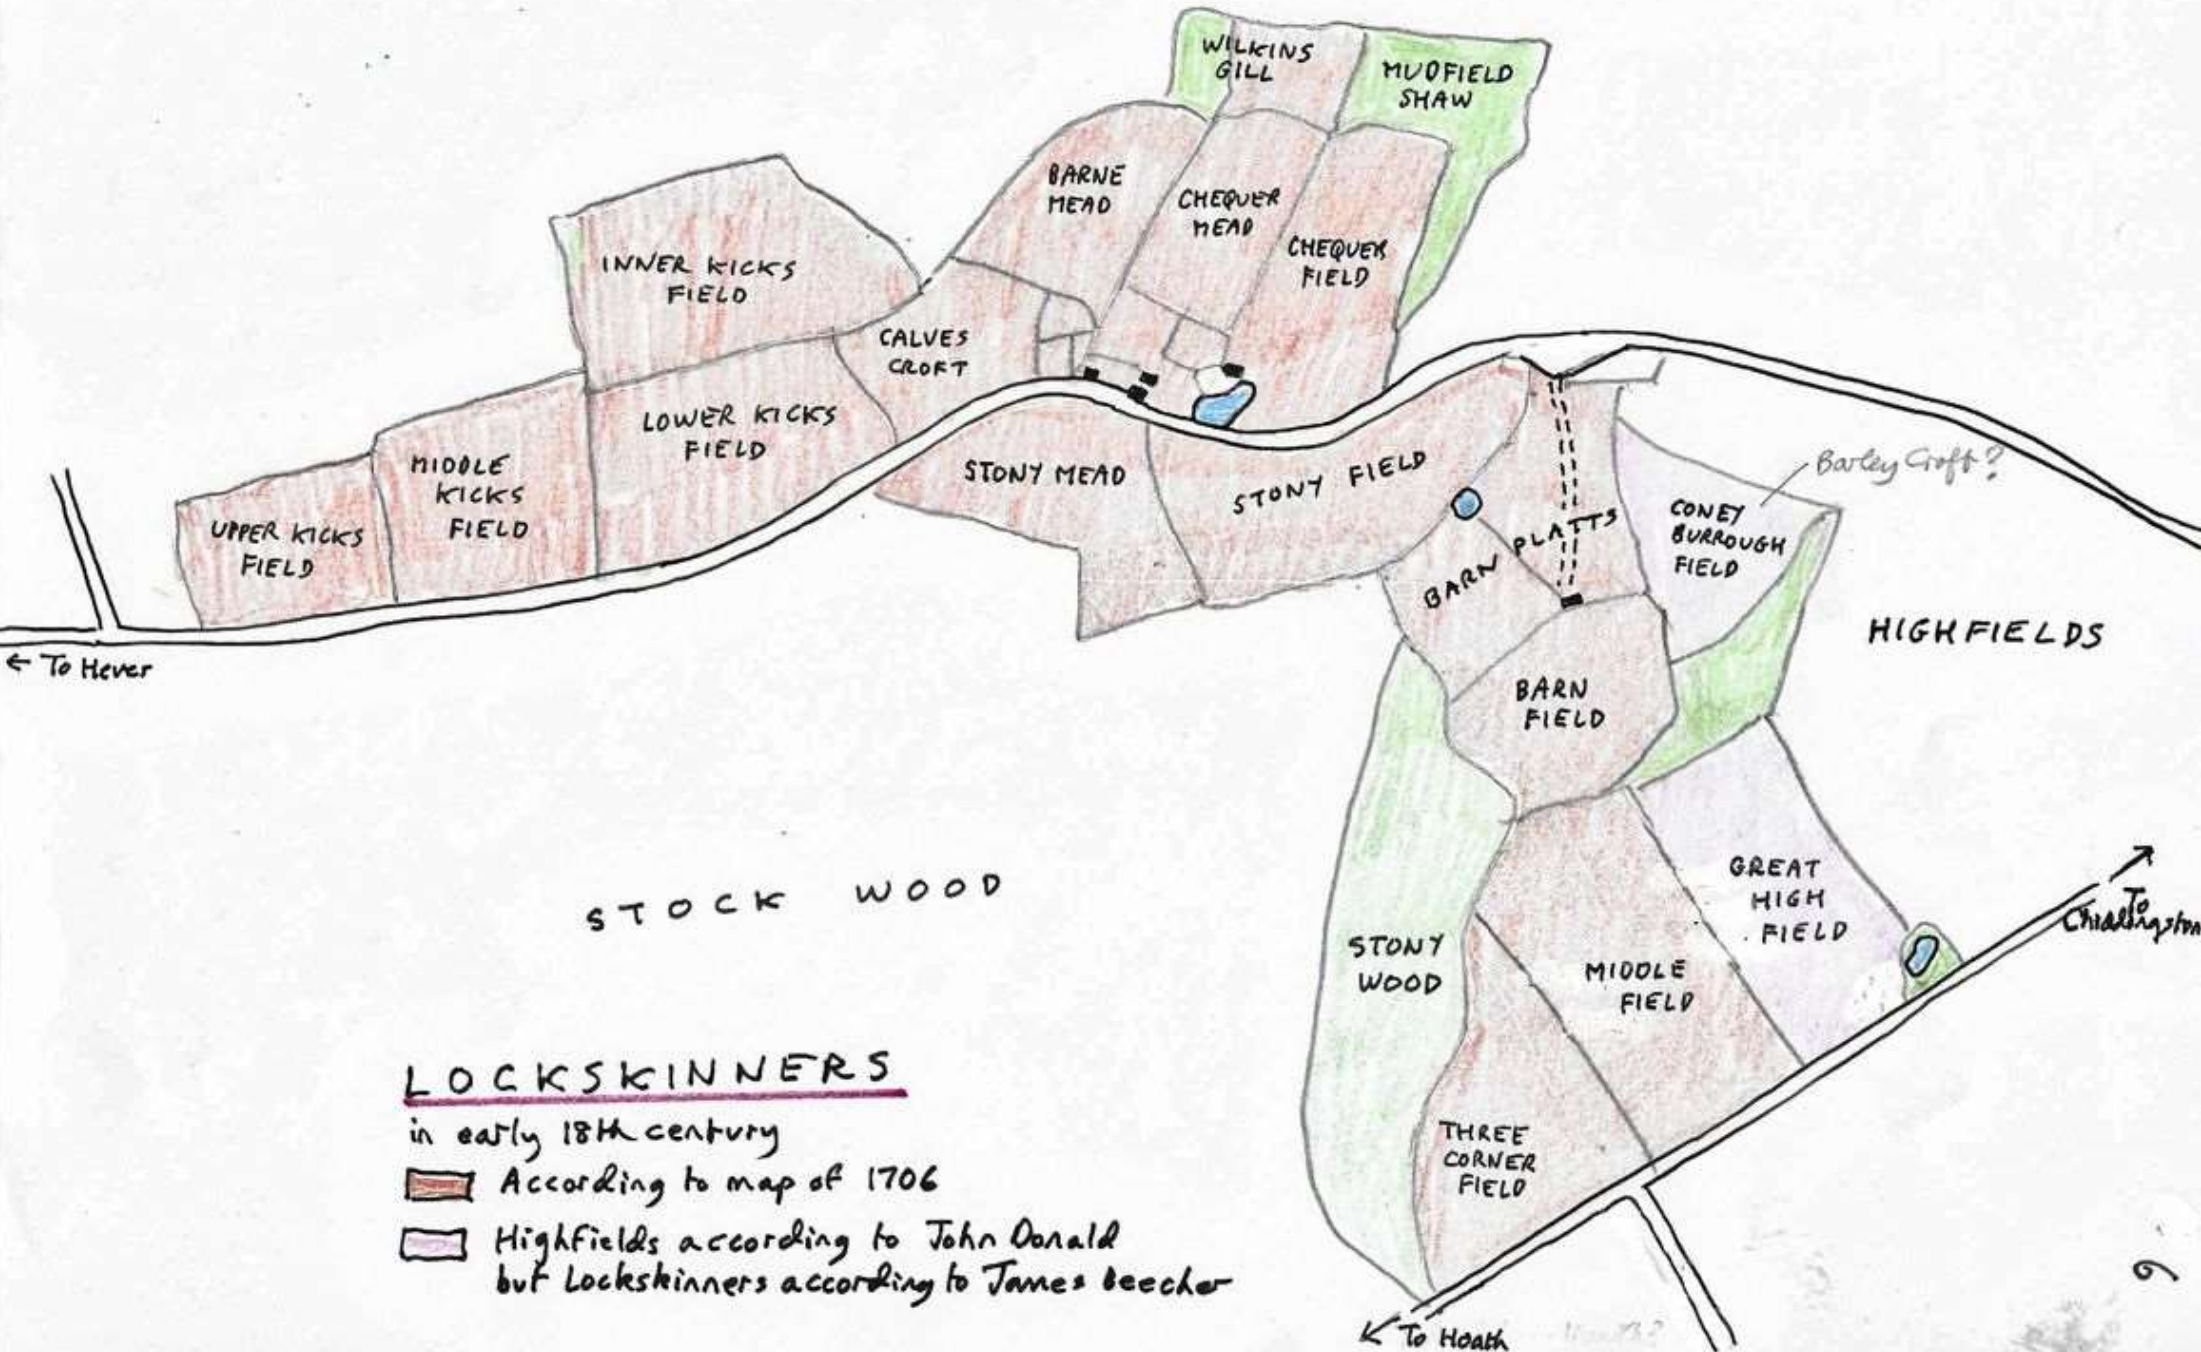 WILKINS
GILL
MUDFIELD
SHAW
BARNE
MEAD
CHEQUER
MEAD
CHEQUER
FIELD
INNER KICKS
FIELD
CALVES
CROFT
LOWER KICKS
FIELD
MIDDLE
KICKS
FIELD
UPPER KICKS
FIELD
STONY MEAD
STONY FIELD
BARN PLATTS
Barley Croft?
CONEY
BURROUGH
FIELD
HIGHFIELDS
← To Hever
BARN
FIELD
STOCK WOOD
GREAT
HIGH
FIELD
To
Chiddingstone
STONY
WOOD
MIDDLE
FIELD
THREE
CORNER
FIELD
LOCKSKINNERS
in early 18th century
According to map of 1706
Highfields according to John Donald
but Lockskinners according to James Beecher
← To Hoath
9